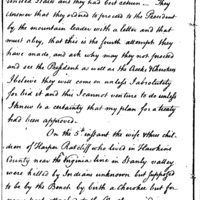 United States and they had best return — They
answer that they ordered to proceed to the President
by the mountain leader with a letter and that
must obey, that this is the fourth attempt they
have made, and ask why may they not proceed
and see the President as well as the Creeks & Cherokees
I believe they will come on unless I absolutely
forbid it and this I cannot venture to do unless
I knew to a certainty that my plan for a treaty
had been approved.
On the 3d instant the wife & three chil-
dren of Harper Ratcliff who lived in Hawkins
County near the Virginia line in Stanly valley
were killed by Indians unknown but supposed
to be by the Bench by birth a cherokee but for